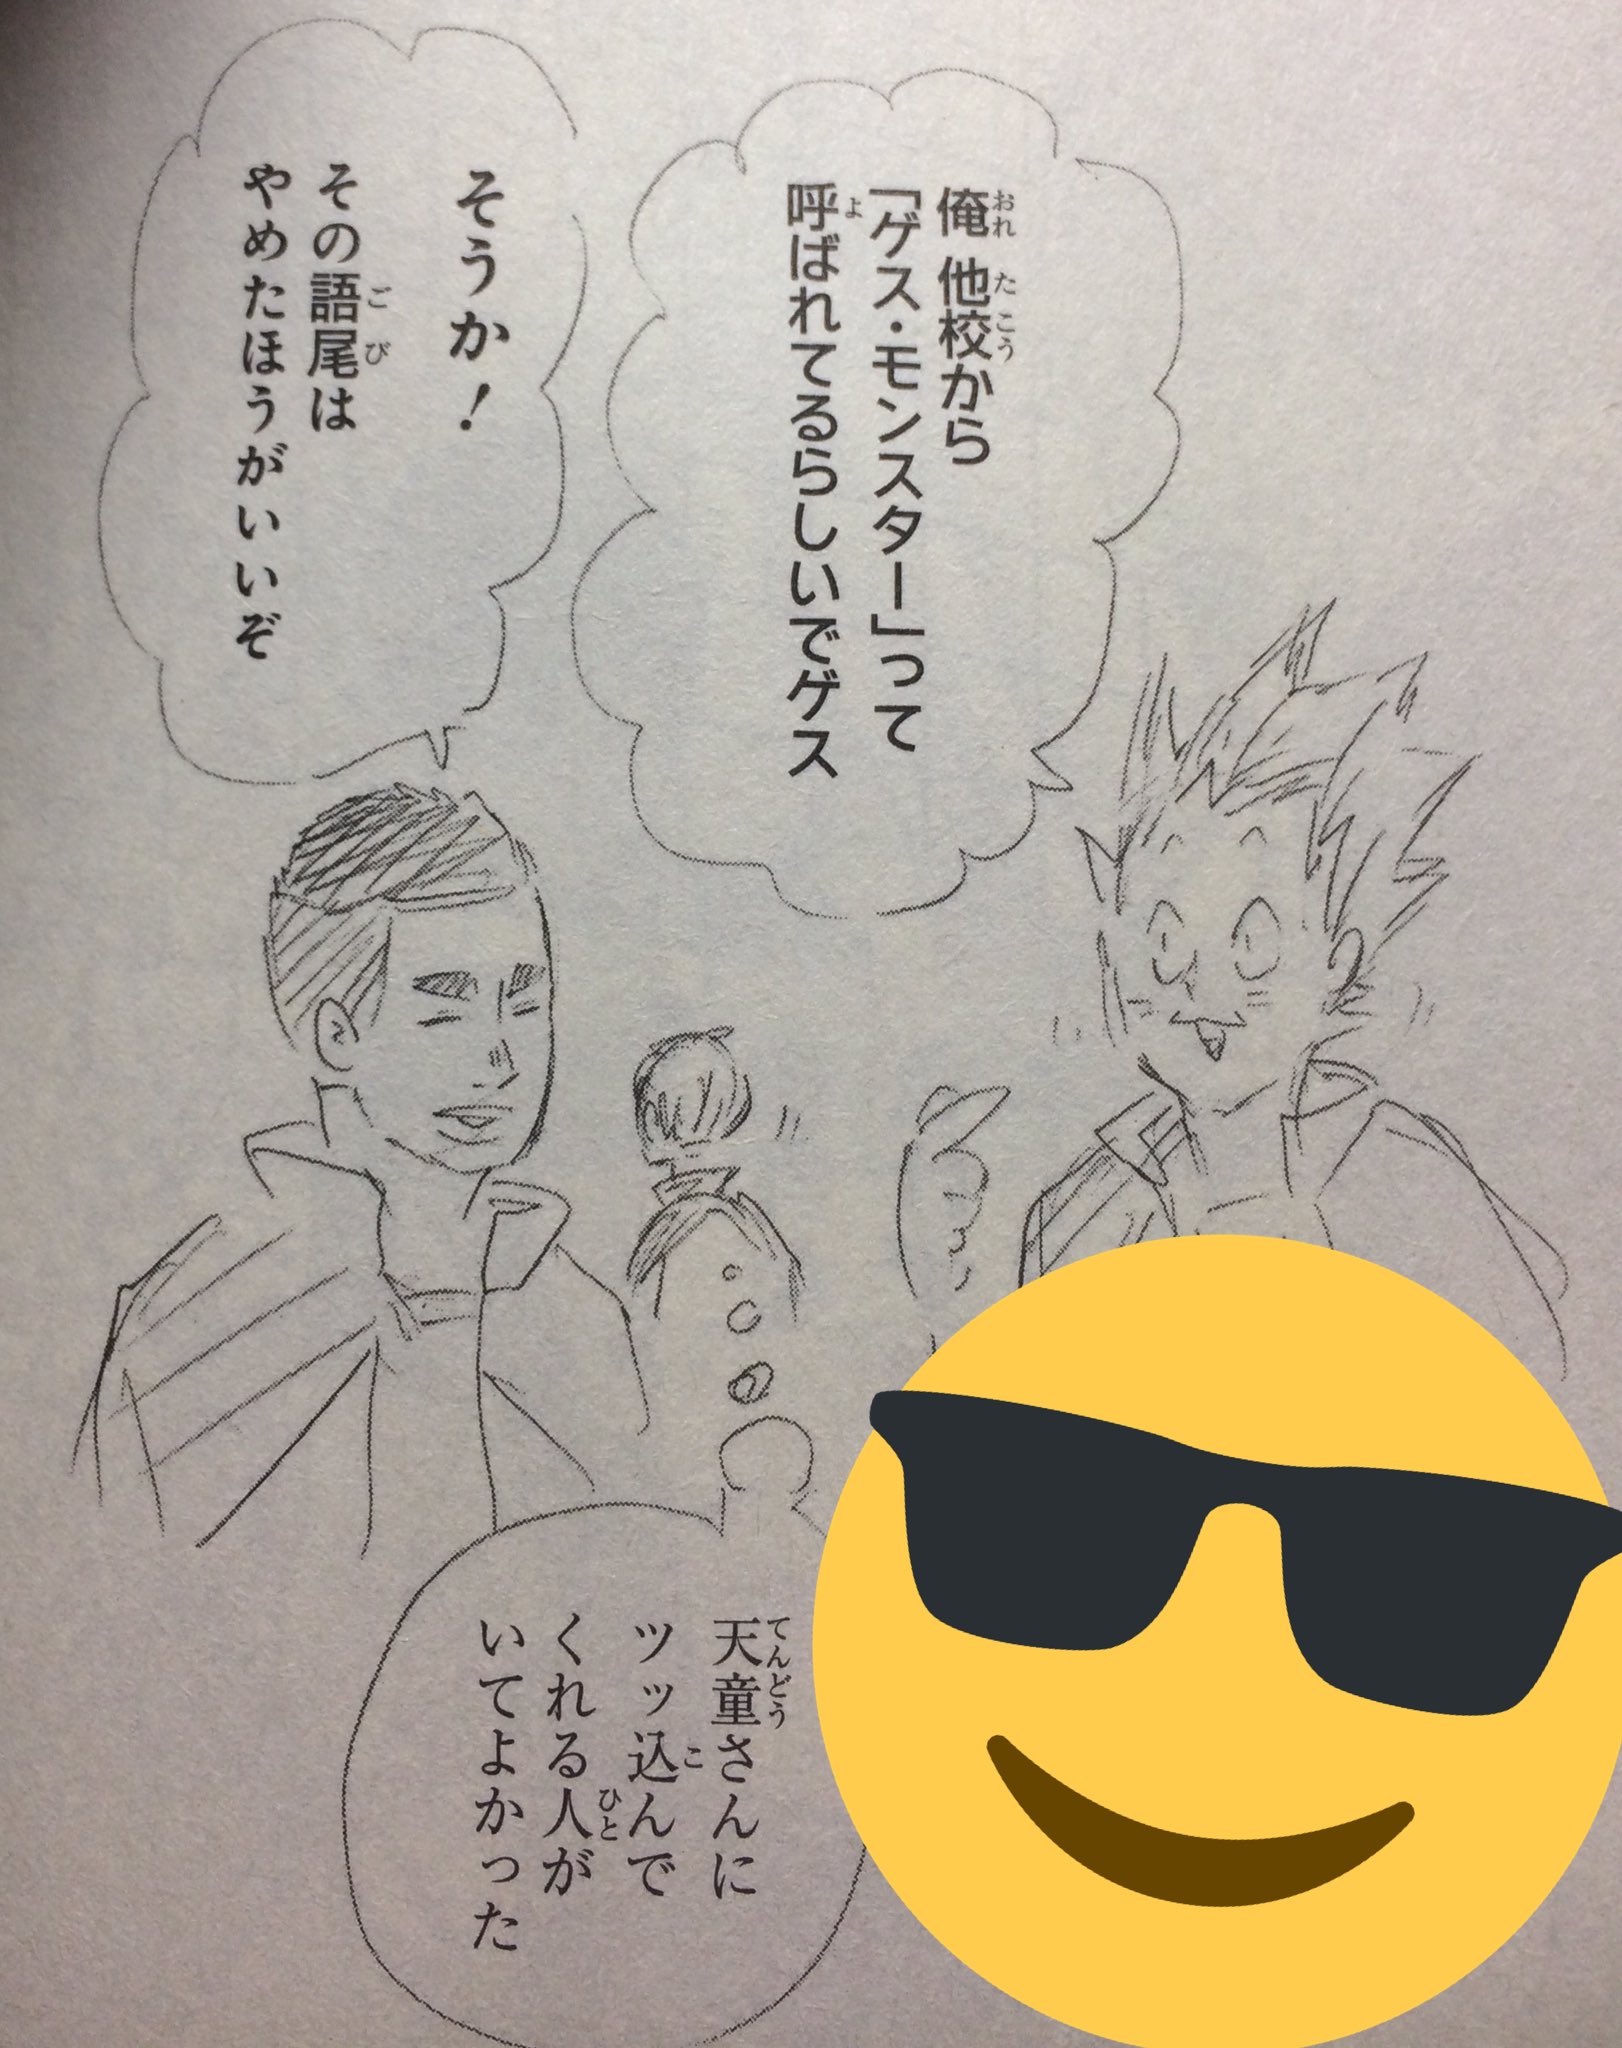 俺 他校から
「ゲス・モンスター」って
呼ばれてるらしいでゲス
そうか！
その語尾は
やめたほうがいいぞ
天童さんに
ツッ込んで
くれる人が
いてよかった